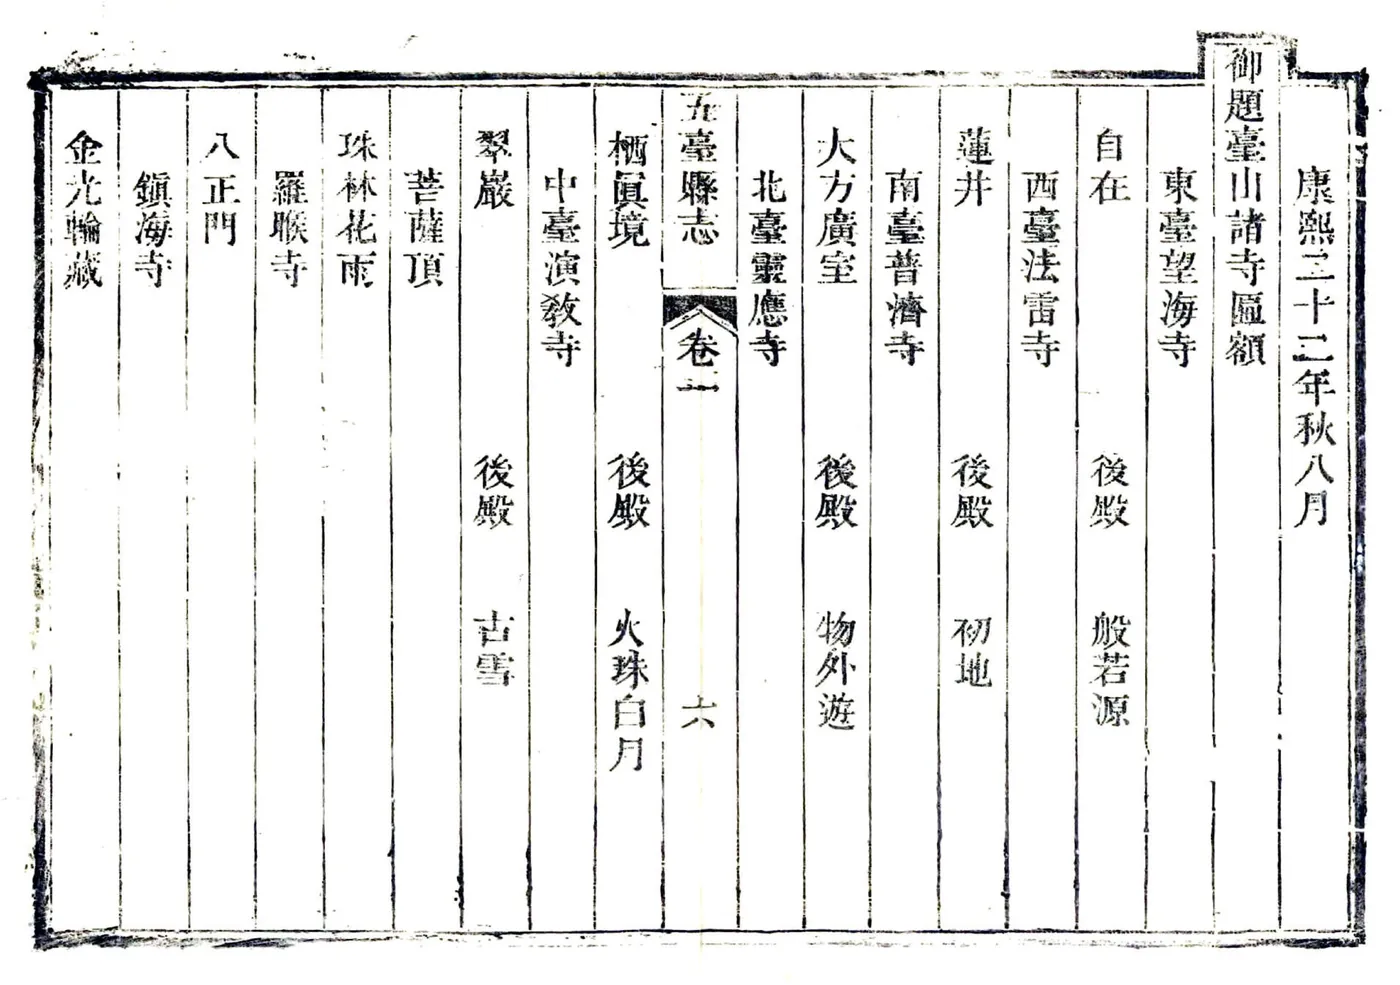 康熙二十二年秋八月
御題臺山諸寺匾額
東臺望海寺
自在 後殿 般若源
西臺法雷寺
蓮井 後殿 初地
南臺普濟寺
大方廣室 後殿 物外遊
北臺靈應寺
五臺縣志 卷一 六
栖眞境 後殿 火珠白月
中臺演教寺
翠巖 後殿 古雪
菩薩頂
珠林花雨
羅睺寺
八正門
鎮海寺
金光輪藏